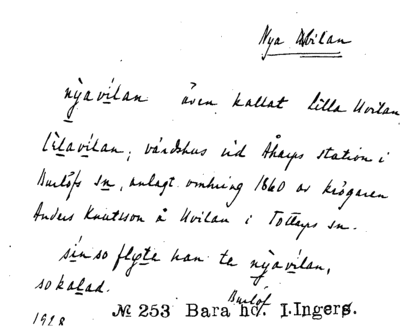 Nya Hvilan
nỳavílan även kallat Lilla Hvilan,
lìlavílan, värdshus vid Åkarps station i
Burlöfs sn, anlagt omkring 1860 av krögaren
Anders Knutsson å Hvilan i Tottarps sn.
sin so flyte han te nỳavílan,
so kalad.
Burlöf
1928 № 253 Bara hd. I.Ingers.